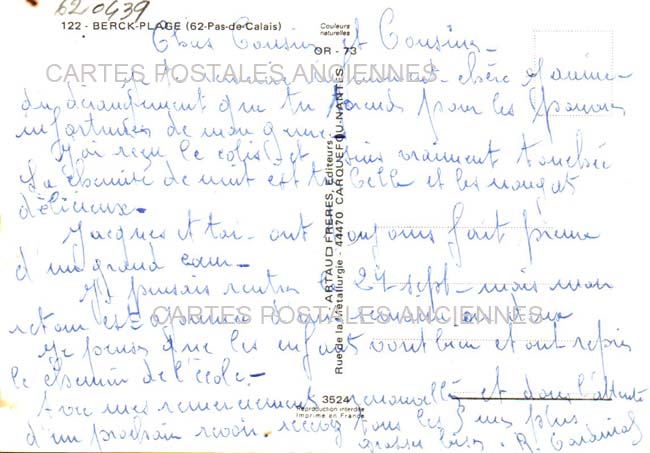 620439
122 - BERCK-PLAGE (62-Pas-de-Calais)
Couleurs
naturelles
OR - 73
Chers Cousin et Cousine -
Je te remercie vraiment chère Janine
du dérangement que tu prends pour les
infortunées de mon genre
J'ai reçu le colis et suis vraiment touchée
La chemise de nuit est très belle et les nougats
délicieux -
Jacques et toi - ont toujours fait preuve
d'un grand cœur -
Je pensais rentrer le 24 sept - mais mon
retour est
Je pense que les enfants vont bien et ont repris
le chemin de l'école -
Avec mes remerciements renouvelés et dans l'attente
d'un prochain revoir recevez tous les 5 mes plus
grosses bises - R.
CARTES POSTALES ANCIENNES
CARTES POSTALES ANCIENNES
ARTAUD FRERES, Editeurs
Rue de la Métallurgie - 44470 CARQUEFOU-NANTES
3524
Reproduction interdite
Imprimé en France